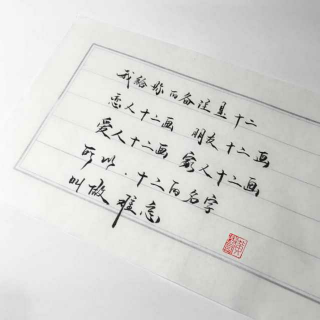 我给你的备注是十二
恋人十二画 朋友十二画
爱人十二画 家人十二画
所以，十二的名字
叫做 难忘